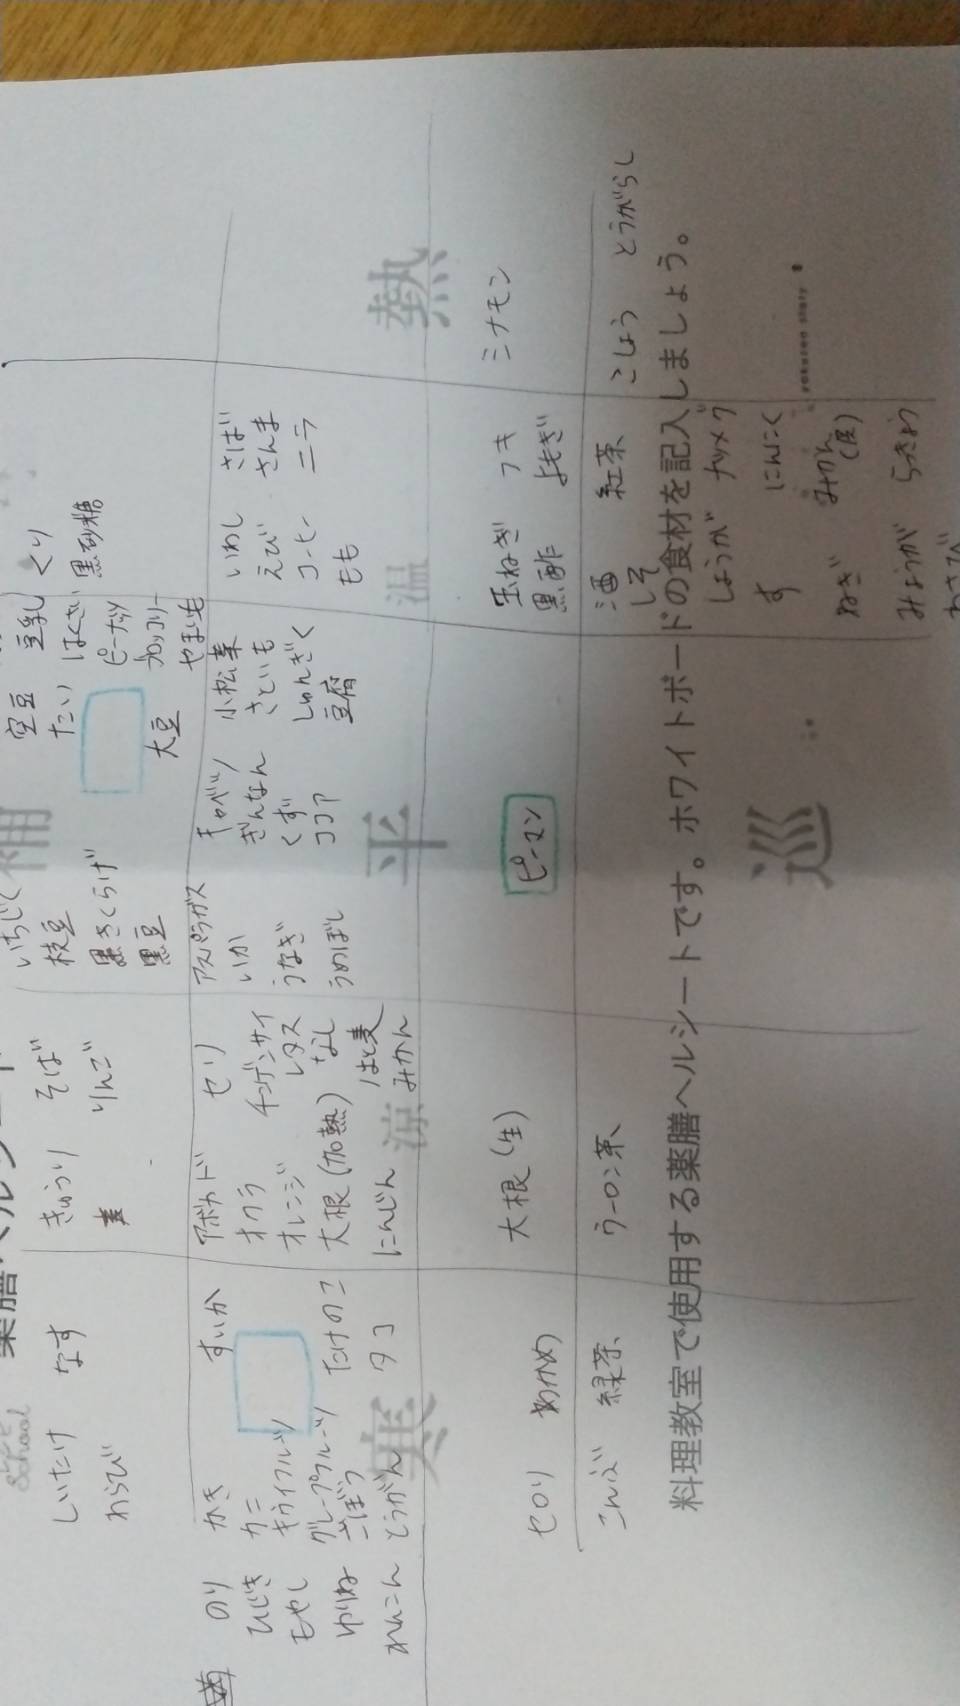 補
いちじく
枝豆
黒きくらげ
黒豆
空豆
たい
大豆
豆乳
はくさい
ピーナッツ
ブロッコリー
やまいも
くり
黒砂糖
きゅうり
そば
りんご
しいたけ
わらび
なす
のり
ひじき
もやし
ゆりね
れんこん
かき
カニ
キウイフルーツ
グレープフルーツ
ごぼう
とうがん
すいか
たけのこ
タコ
寒
アボカド
オクラ
オレンジ
大根(加熱)
にんじん
セリ
チンゲンサイ
レタス
なし
はと麦
みかん
涼
アスパラガス
いか
うなぎ
うめぼし
キャベツ
ぎんなん
くず
ココア
小松菜
さといも
しゅんぎく
豆腐
平
いわし
えび
コーヒー
もも
さば
さんま
ニラ
温
熱
セロリ
わかめ
大根(生)
ピーマン
玉ねぎ
黒酢
フキ
よもぎ
シナモン
こんぶ
緑茶
ウーロン茶
酒
しそ
しょうが
す
ねぎ
みょうが
わさび
紅茶
ナツメグ
にんにく
みかん(皮)
らっきょう
こしょう
とうがらし
巡
料理教室で使用する薬膳ヘルシートです。ホワイトボードの食材を記入しましょう。